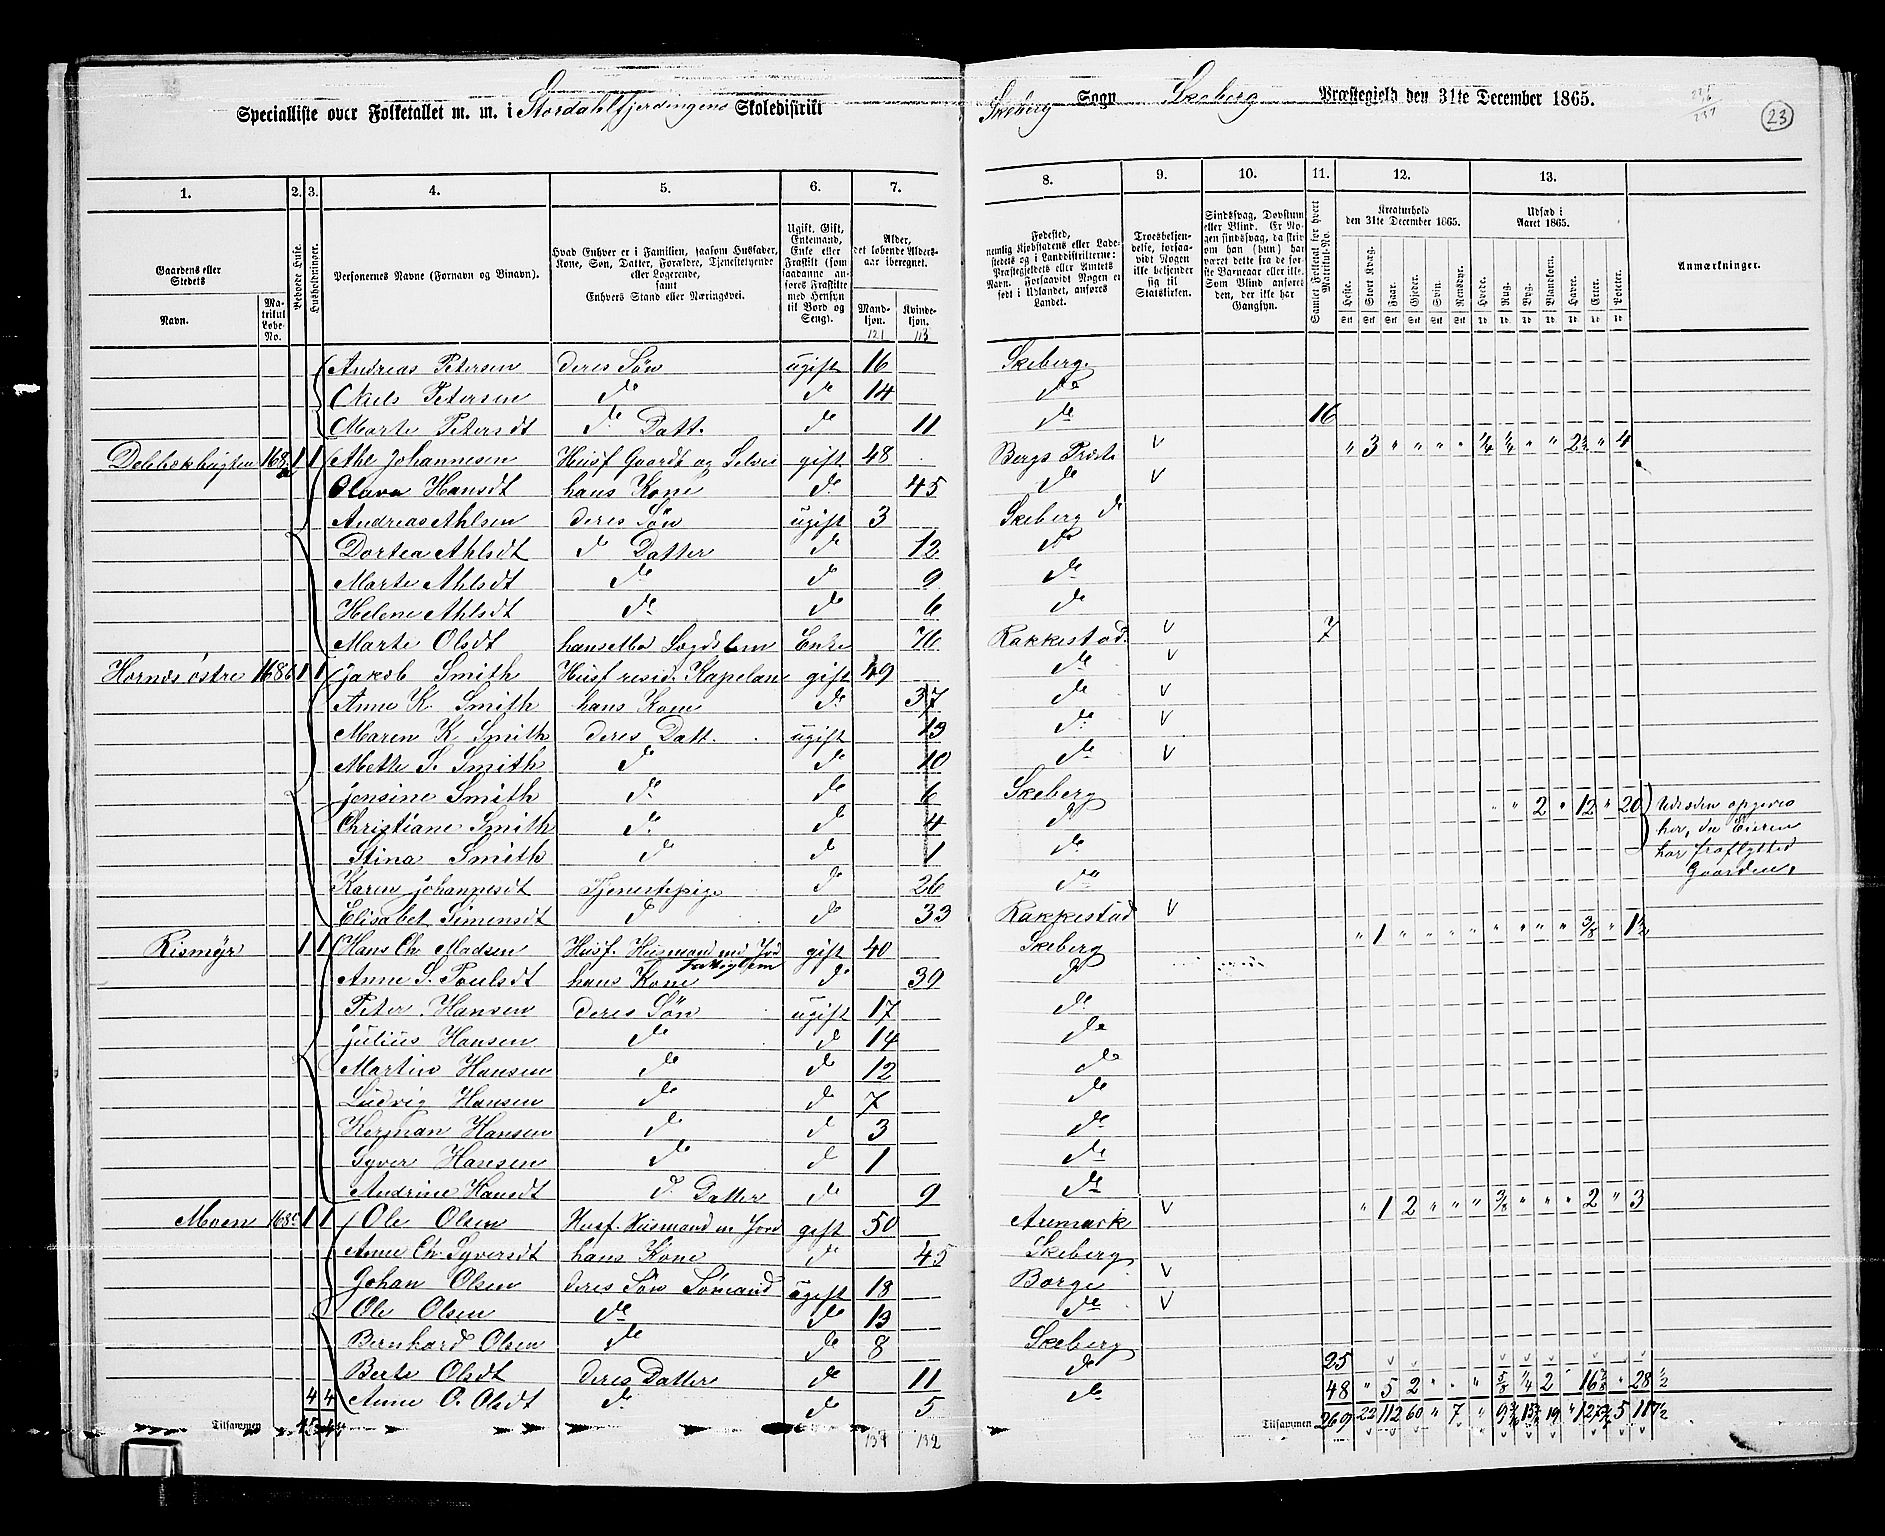 Specialliste over Folketallet m. m. i Stordahlfjerdingens Skoledistrikt
Skeberg Sogn Skeberg Præstegjeld den 31te December 1865.
23
1. 2. 3. 4. 5. 6. 7. 8. 9. 10. 11. 12. 13.
Gaardens eller Stedets
Navn.
Matrikul Løbe-No.
Beboede Huse.
Husholdninger.
Personernes Navne (Fornavn og Binavn).
Hvad Enhver er i Familien, saasom Husfader, Kone, Søn, Datter, Forældre, Tjenestetyende eller Logerende, samt Enhvers Stand eller Næringsvei.
Ugift, Gift, Enkemand, Enke eller Fraskilt (som saadanne anføres Fraskilte med Hensyn til Bord og Seng).
Alder, det løbende Aldersaar iberegnet.
Mandkjøn. 121
Kvindekjøn. 113
Fødested, nemlig Kjøbstadens eller Ladestedets og i Landdistrikterne: Præstegjeldets eller Amtets Navn. Forsaavidt Nogen er født i Udlandet, anføres Landet.
Troesbekjendelse, forsaavidt Nogen ikke bekjender sig til Statskirken.
Sindssvag, Døvstum eller Blind. Er Nogen sindssvag, da skrives om han (hun) har været dette fra de første Barneaar eller ikke. Som Blind anføres den, der ikke har Gangsyn.
Samlet Folketal for hvert Matrikul-No.
Kreaturhold den 31te December 1865.
Heste. Stort Kvæg. Faar. Gjeder. Svin. Rensdyr.
Udsæd i Aaret 1865.
Hvede. Rug. Byg. Blandkorn. Havre. Erter. Poteter.
Anmærkninger.
Andreas Petersen deres Søn ugift 16 Skeberg.
Niels Petersen do do 14 do
Marte Petersdt do Datt. do 11 do 16
Dolebækhugten 168a 1 1 Ahl Johannesen Husf Gaardb og Selveir gift 48 Bergs Præst. v " 3 " " " " ¼ ¼ " " 2½ " 4
Olava Hansdt hans Kone do 45 do v
Andreas Ahlsen deres Søn ugift 3 Skeberg do
Dortea Ahlsdt do Datter do 12 do
Marte Ahlsdt do do 9 do
Helene Ahlsdt do do 6 do
Marte Olsdt hans Mo Lægdslem Enke 76 Rakkestad. v 7
Hornæs østre 168b 1 1 Jakob Smith Husf resid. Kapelan gift 49 do v
Anne K. Smith hans Kone do 37 do v
Maren K. Smith deres Datt. ugift 13 do v
Mette S. Smith do do 10 do v
Jensine Smith do do 6 Skeberg " " 2 " 12 " 20 Udsæden opgives
Christiane Smith do do 4 do her, da Eieren
Stina Smith do do 1 do har fraflyttet
Karen Johannesdt Tjenestepige do 26 do Gaarden.
Elisabet Simensdt do do 33 Rakkestad v
Rismyr 1 1 Hans Ch. Madsen Husf. Husmand m Jord gift 40 Skeberg " 1 " " " " " " " " 3/8 " 1½
Fattiglem
Anne S. Poulsdt hans Kone do 39 do
Peter Hansen deres Søn ugift 17 do
Julius Hansen do do 14 do
Martin Hansen do do 12 do
Ludvig Hansen do do 7 do
Herman Hansen do do 3 do
Syver Hansen do do 1 do
Andrine Hansdt do Datter do 9 do
Moen 168c 1 1 Ole Olsen Husf. Husmand m Jord gift 50 Aremark v " 1 2 " " " 3/8 " " " 2 " 3
Anne Ch. Syversdt hans Kone do 45 Skeberg
Johan Olsen deres Søn Sømand ugift 18 Borge v
Ole Olsen do do 13 do v
Bernhard Olsen do do 8 Skeberg
Berte Olsdt deres Datter do 11 do 25
4 4 Anne O. Olsdt do do 5 do 48 " 5 2 " " " 5/8 ¼ 2 " 16 " 28 ½
Tilsammen 139 132
Tilsammen 269 22 112 60 " 7 "